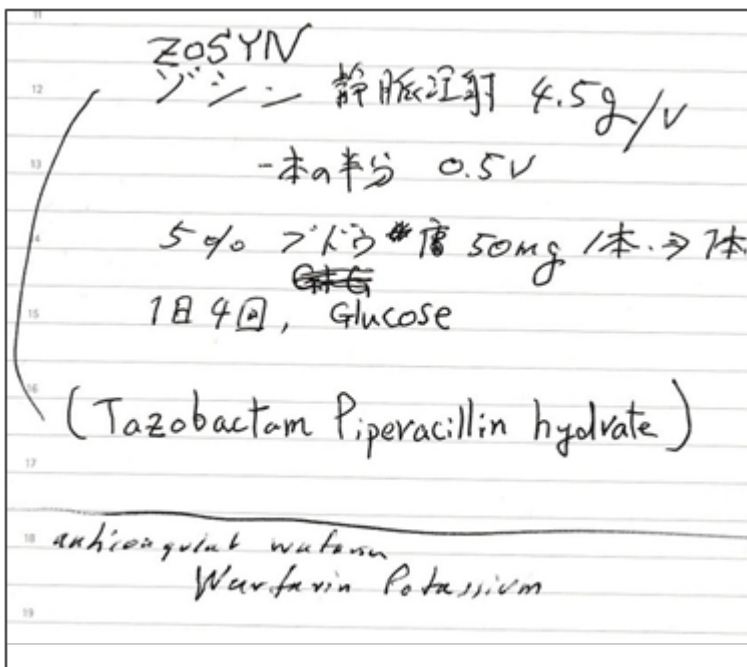 11
ZOSYN
12 ゾシン 静脈注射 4.5g/V
13 一本の半分 0.5V
5% ブドウ 糖 50mg 1本 → 1本
15 1日4回, Glucose
16 (Tazobactam Piperacillin hydrate)
17
18 anticoagulant
Warfarin Potassium
19